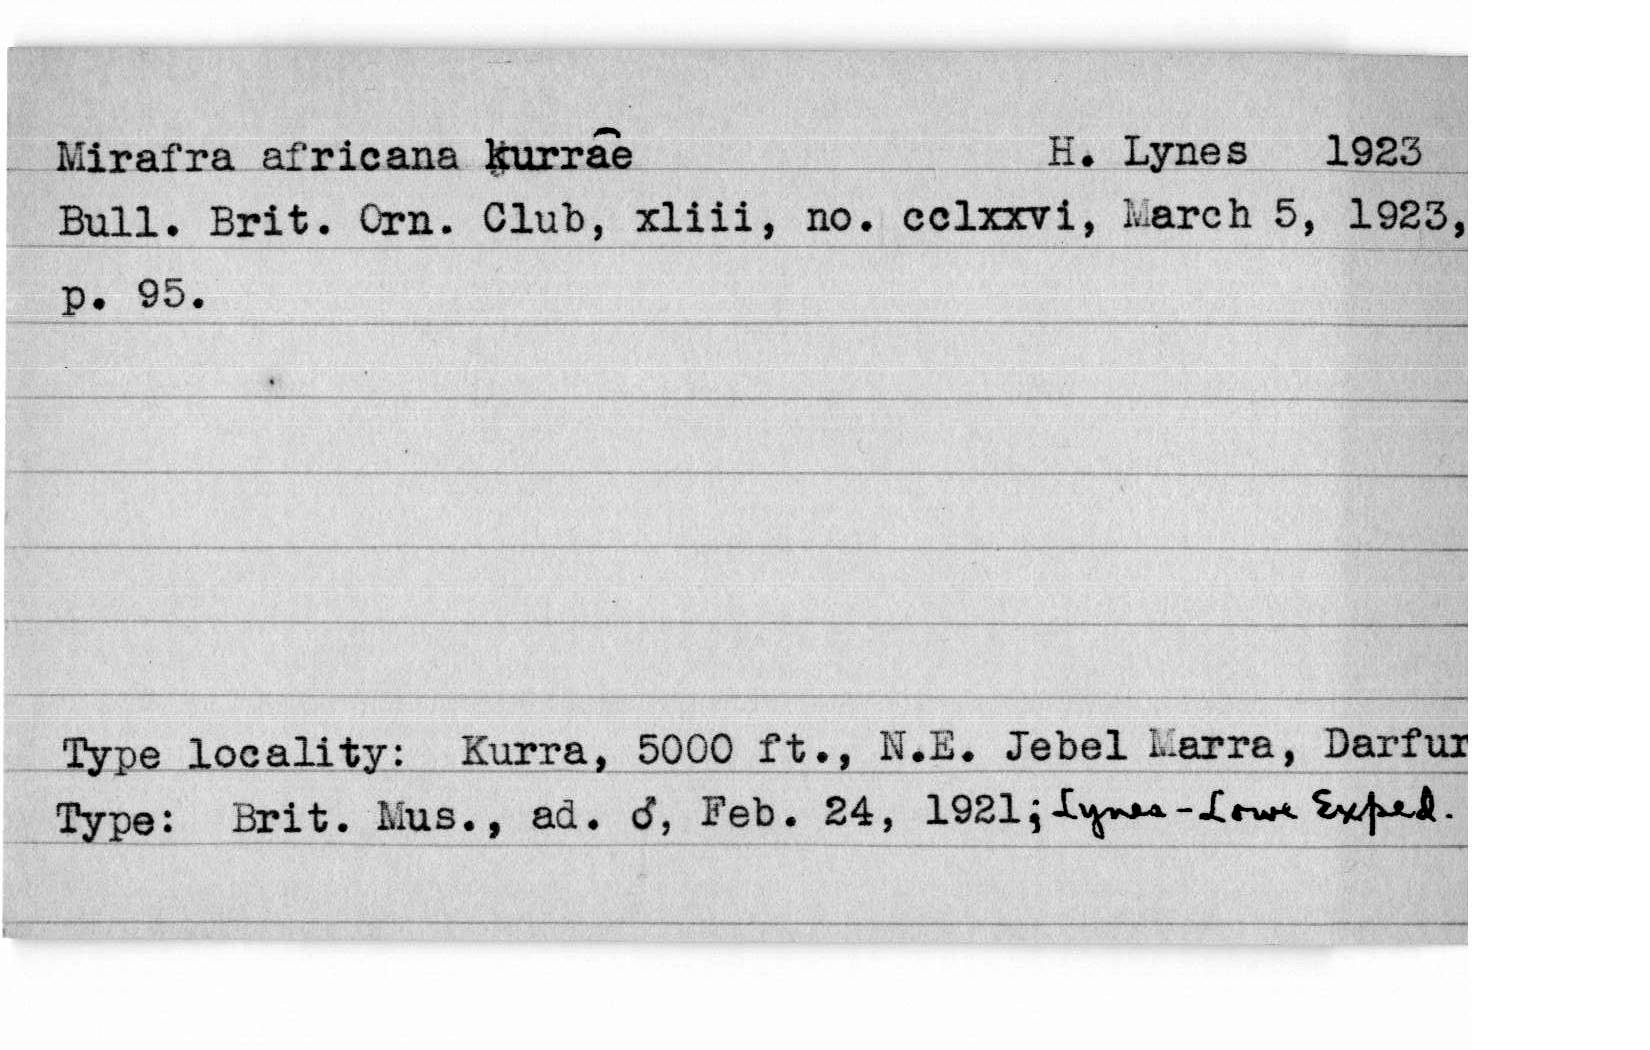 Mirafra africana kurrae H. Lynes 1923
Bull. Brit. Orn. Club, xliii, no. cclxxvi, March 5, 1923,
p. 95.
Type locality: Kurra, 5000 ft., N.E. Jebel Marra, Darfur
Type: Brit. Mus., ad. ♂, Feb. 24, 1921; Lynes-Lowe Exped.